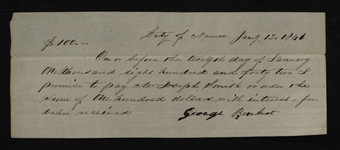 City of Nauvoo Jany. 12. 1841
$100.—
On or before the twelfth day of January
One thousand eight hundred and forty two I
promise to pay to Joseph Smith or order the
sum of One hundred dollars with interest for
value received
George